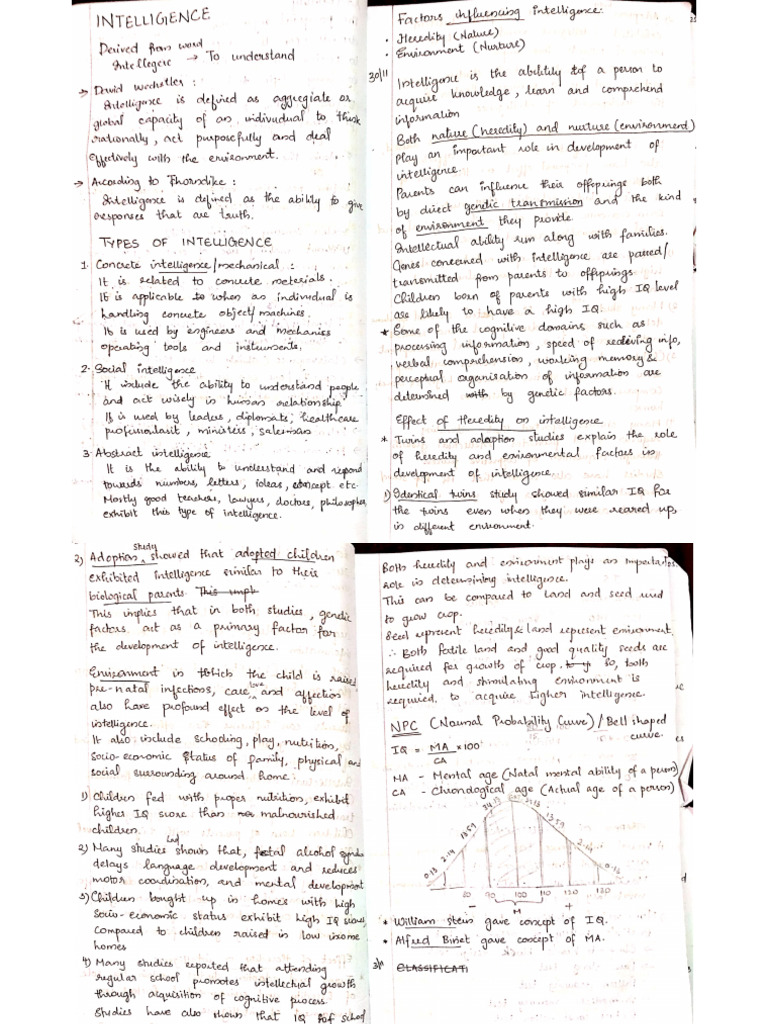 INTELLIGENCE
Derived from word
Intellegere → To understand
→ David wechsler :
Intelligence is defined as aggregiate or
global capacity of an individual to think
rationally, act purposefully and deal
effectively with the environment.
→ According to Thorndike :
Intelligence is defined as the ability to give
responses that are truth.
TYPES OF INTELLIGENCE
1. Concrete intelligence/mechanical :
It is related to concrete materials.
It is applicable to when an individual is
handling concrete object/machines.
It is used by engineers and mechanics
operating tools and instruments.
2. Social intelligence
It include the ability to understand people
and act wisely in human relationship.
It is used by leaders, diplomats, healthcare
ministers, salesman
3. Abstract intelligence
It is the ability to understand and
towards numbers, letters, ideas, concept etc.
Mostly good teachers, lawyers, doctors, philosophers
exhibit this type of intelligence.
Factors influencing intelligence:
• Heredity (Nature)
• Environment (Nurture)
30/11
Intelligence is the ability of a person to
acquire knowledge, learn and comprehend
information
Both nature (heredity) and nurture (environment)
play an important role in development of
intelligence.
Parents can influence their offsprings both
by direct genetic transmission and the kind
of environment they provide.
Intellectual ability run along with families.
Genes concerned with intelligence are passed/
transmitted from parents to offsprings
Children born of parents with high IQ level
are likely to have a high IQ.
* Some of the cognitive domains such as
processing information, speed of recieving info,
verbal comprehension, working memory &
perceptual organisation of information are
determined with by genetic factors.
Effect of Heredity on intelligence
* Twins and adoption studies explain the role
of heredity and environmental factors in
development of intelligence.
1) Identical twins study showed similar IQ for
the twins even when they were reared up,
in different environment.
2) Adoption study showed that adopted children
exhibited intelligence similar to their
biological parents This impl
This implies that in both studies, genetic
factors act as a primary factor for
the development of intelligence.
Environment in which the child is raised
pre-natal infections, care, love and affection
also have profound effect on the level of
intelligence.
It also include schooling, play, nutrition,
socio-economic status of family, physical and
social surrounding around home.
1) Children fed with proper nutrition, exhibit
higher IQ score than malnourished
children.
2) Many studies had shown that, foetal alcohol
delays language development and reduces
motor coordination, and mental development
3) Children bought up in homes with high
socio-economic status exhibit high IQ
compared to children raised in low income
homes
4) Many studies reported that attending
regular school promotes intellectual growth
through acquisition of cognitive process.
Studies have also shown that IQ of school
Both heredity and environment plays an important
role in determining intelligence.
This can be compared to Land and seed used
to grow crop.
Seed represent heredity & land represent environment.
∴ Both fertile land and good quality seeds are
required for growth of crop. So, both
heredity and stimulating environment is
required to acquire higher intelligence.
NPC (Normal Probability Curve) / Bell shaped
curve.
IQ = MA/CA × 100
MA - Mental age (Natal mental ability of a person)
CA - Chronological age (Actual age of a person)
0.13 2.14 13.59 34.13 34.13 13.59 2.14 0.13
80 90 100 110 120 130
− M +
* William stern gave concept of IQ.
* Alfred Binet gave concept of MA.
3/11 CLASSIFICATI